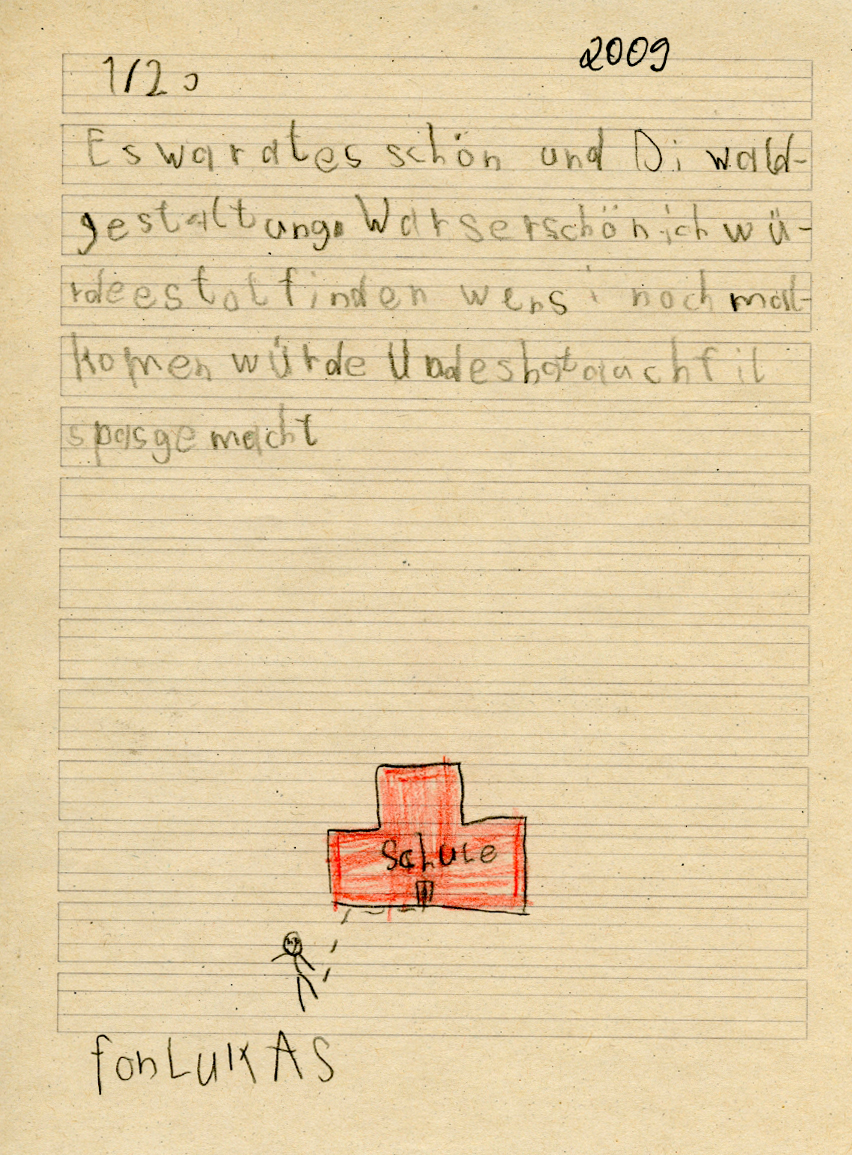 2009
1/2 c
Es war dtes schön und Di wald-
gestaltung. War serschön ich wü-
rde es tol finden wen si noch mal
komen würde Und es hat auch fil
spas gemacht
Schule
fon LUKAS